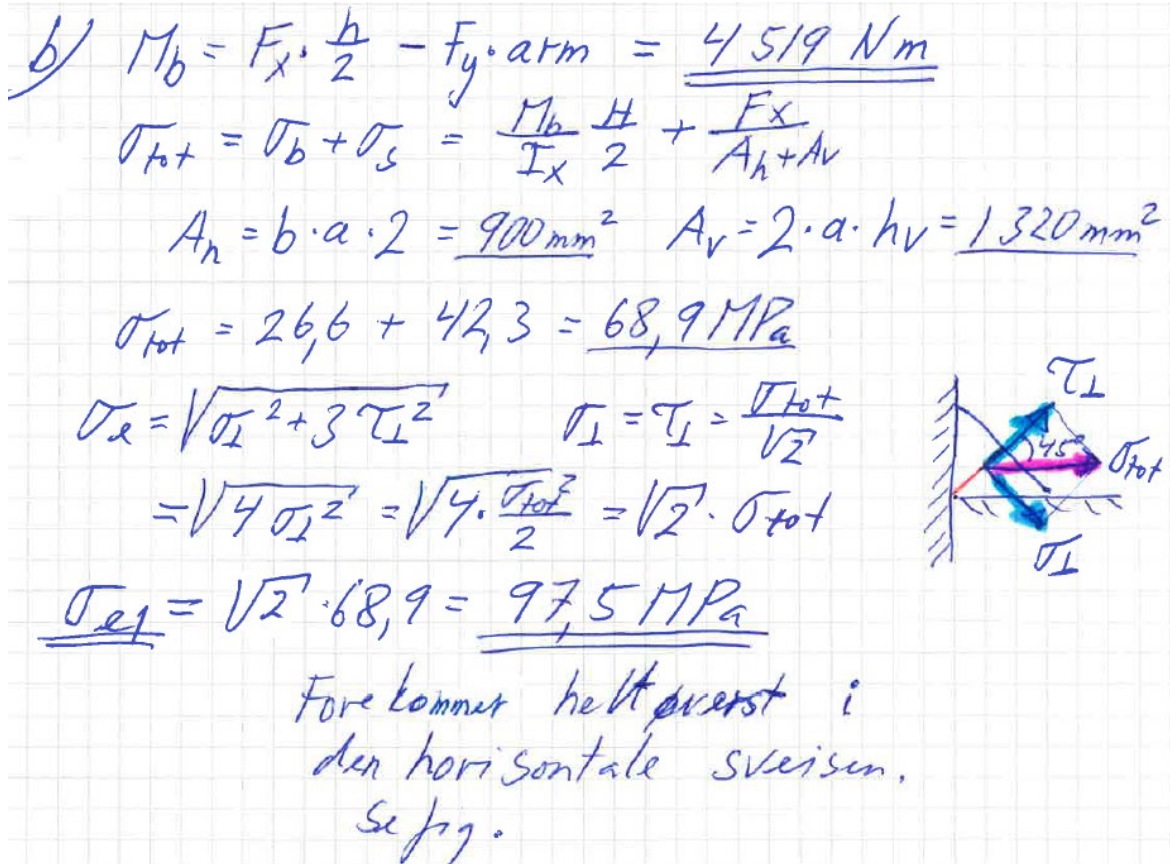 b) M_b = F_x · h/2 - F_y · arm = 4 519 Nm
σ_tot = σ_b + σ_s = M_b/I_x H/2 + F_x/(A_h + A_v)
A_h = b · a · 2 = 900 mm² A_v = 2 · a · h_v = 1 320 mm²
σ_tot = 26,6 + 42,3 = 68,9 MPa
σ_e = √(σ_⊥² + 3 τ_⊥²) σ_⊥ = τ_⊥ = σ_tot/√2
= √(4 σ_⊥²) = √(4 · σ_tot²/2) = √2 · σ_tot
τ_⊥
45°
σ_tot
σ_⊥
σ_e1 = √2 · 68,9 = 97,5 MPa
Forekommer helt øverst i
den horisontale sveisen.
Se fig.